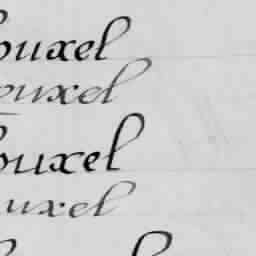 ouxel
ouxel
ouxel
uxel